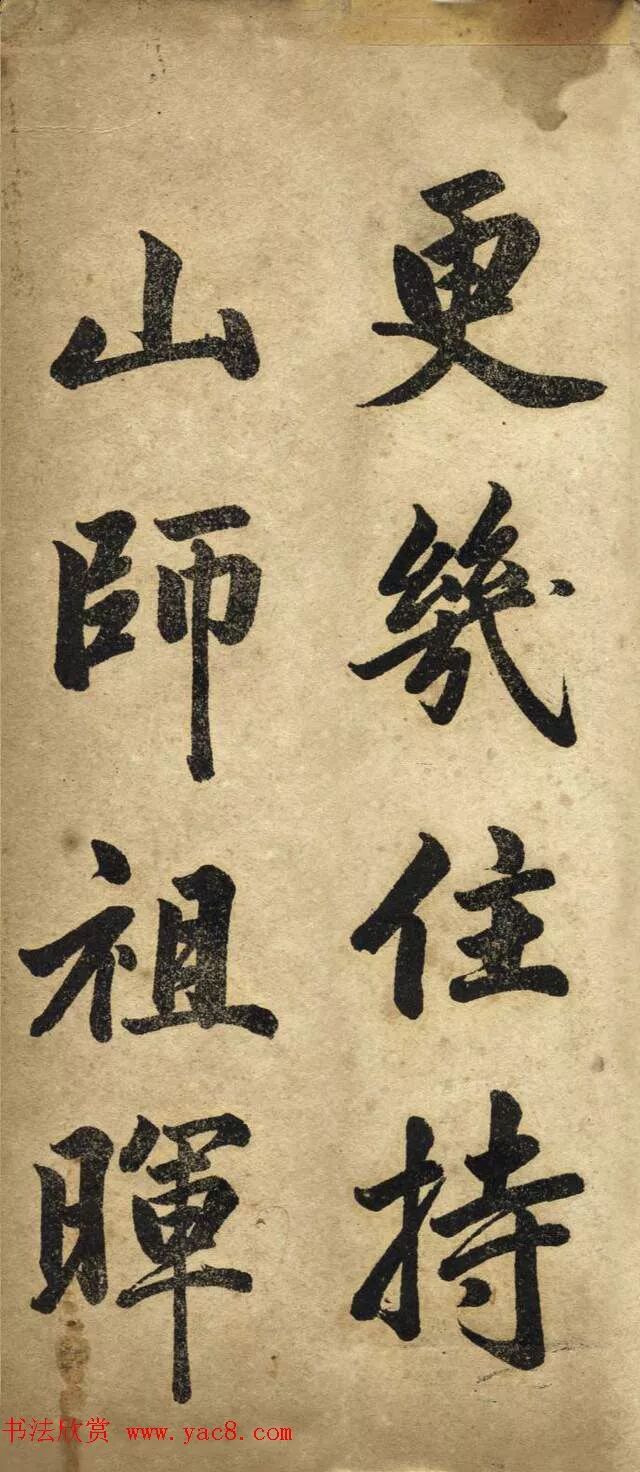 更幾住持
山師祖暉
书法欣赏 www.yac8.com